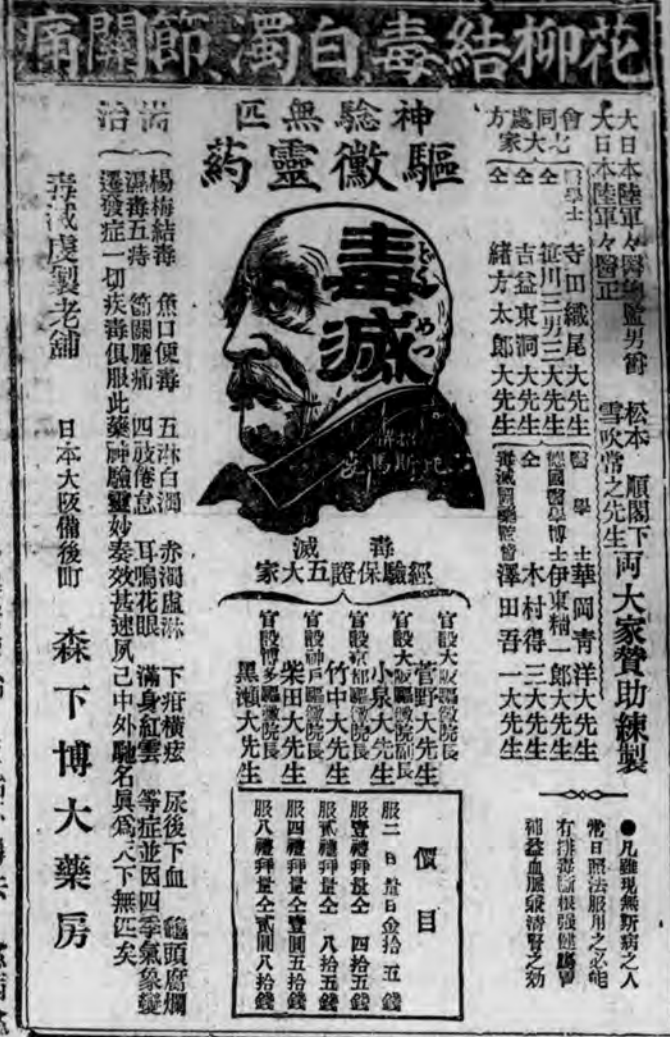 花柳結毒、白濁、節關痛
大日本陸軍々醫總監男爵 松本 順閣下
大日本陸軍々醫正 雪吹常之先生
両大家賛助練製
會心同處大方家
醫學士 寺田織尾大先生
仝 笹川三男三大先生
仝 吉益東洞大先生
仝 緒方太郎大先生
醫學士 華岡青洋大先生
德國醫學博士 伊東精一郎大先生
仝 木村得三大先生
毒滅國藥監督 澤田吾一大先生
●凡雖現無斯病之人
常日照法服用之必能
有排毒斷根强健腸胃
補益血脈發清腎之効
神驗無匹
驅黴靈药
毒滅
どくめつ
毒滅
經驗保證五大家
官設大阪驅黴院長 菅野大先生
官設大阪驅黴院副長 小泉大先生
官設京都驅黴院長 竹中大先生
官設神戸驅黴院長 柴田大先生
官設博多驅黴院長 黑瀨大先生
價目
服二日量日金拾五錢
服壹禮拜量仝 四拾五錢
服貳禮拜量仝 八拾五錢
服四禮拜量仝壹圓五拾錢
服八禮拜量仝貳圓八拾錢
治
楊梅結毒 魚口便毒 五淋白濁 赤濁盧淋 下疳橫痃 尿後下血 龜頭腐爛
濕毒五痔 筋關腫痛 四肢倦怠 耳鳴花眼 滿身紅雲 等症並因四季氣象變
遷發症一切疾毒俱服此藥神驗靈妙奏效甚速夙已中外馳名眞爲天下無匹矣
毒滅虔製老舖 日本大阪備後町 森下博大藥房